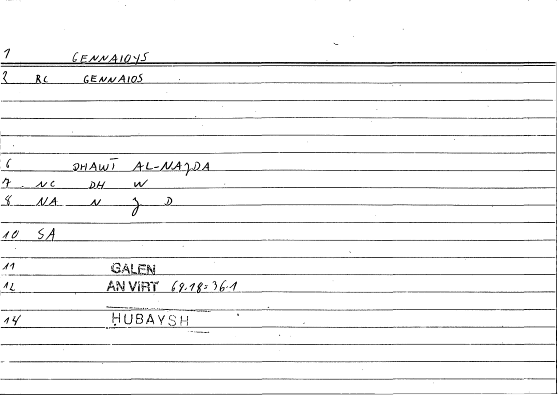 1 GENNAIOYS
2 RC GENNAIOS
6 DHAWĪ AL-NAJDA
7 NC DH W
8 NA N J D
10 SA
11 GALEN
12 AN VIRT 69.18=36.1
14 ḤUBAYSH